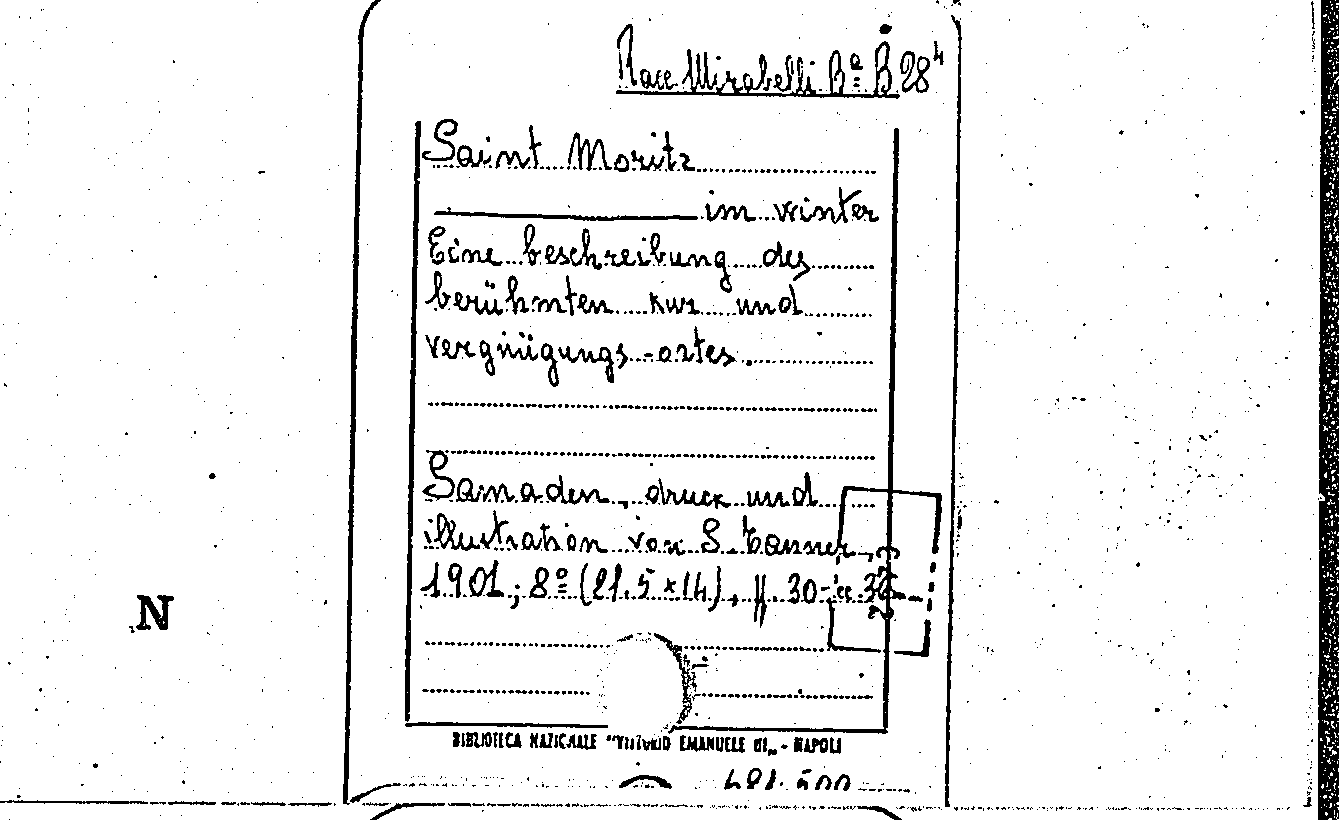 Racc. Mirabelli Bª B 28⁴
Saint Moritz
im winter
Eine beschreibung des
berühmten kur und
vergnügungs-ortes.
Samaden, druck und
illustration von S. Tanner,
1901; 8º (21.5×14), pp. 30-
N
BIBLIOTECA NAZIONALE "VITTORIO EMANUELE III„ - NAPOLI